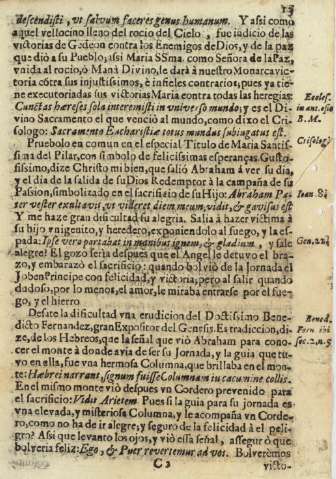 13
descendisti, ut salvum faceres genus humanum. Y assi como
aquel vellocino lleno del rocio del Cielo, fue iudicio de las
victorias de Gedeon contra los Enemigos de Dios, y de la paz
que diò a su Pueblo; assi Maria SSma. como Señora de la Paz,
vnida al rocio, ò Manà Divino, le darà à nuestro Monarca vic-
toria côtra sus injustissimos, è infieles contrarios; pues ya tie-
ne executoriadas sus victorias Maria contra todas las heregias:
Cunctas hæreses sola interemisti in vniverso mundo; y es el Di-
vino Sacramento el que venciò al mundo, como dixo el Cri-
sologo: Sacramento Eucharistiæ totus mundus subiugatus est.
Ecclef.
in ant. offic
B. M.
Crisolog.
Pruebolo en comun en el especial Titulo de Maria Santis-
sima del Pilar, con simbolo de felicissimas esperanças. Gusto-
sissimo, dize Christo mi bien, que saliò Abraham à ver su dia,
y el dia de la salida de su Dios Redemptor à la campaña de su
Passion, simbolizado en el sacrificio de su Hijo: Abraham Pa-
ter vester exultavit, vt videret diem meum, vidit, & gavisus est
Ioan. 8.
Y me haze gran dificultad su alegria. Salia à hazer victima à
su hijo vnigenito, y heredero, exponiendolo al fuego, y la es-
pada: Ipse vero portabat in manibus ignem, & gladium, y sale
Gen. 22.
alegre! El gozo seria despues que el Angel le detuvo el bra-
zo, y embarazò el sacrificio: quando bolviò de la Jornada el
Joben Principe con felicidad, y victoria; pero al salir quando
dudoso, por lo menos, el amor, le miraba entrarse por el fue-
go, y el hierro
Desate la dificultad vna erudicion del Doctissimo Bene-
dicto Fernandez, gran Expositor del Genesis. Es tradiccion, di-
ze, de los Hebreos, que la señal que viò Abraham para cono-
cer el monte à donde avia de ser su Jornada, y la guia que tu-
vo en ella, fue vna hermosa Columna, que brillaba en el mon-
te: Hæbrei narrant, signum fuisse Columnam in cacumine collis.
Bened.
Fern ibi
sec. 2. n. 5
En el mismo monte viò despues vn Cordero prevenido para
el sacrificio: Vidit Arietem. Pues si la guia para su jornada es
vna elevada, y misteriosa Columna, y le acompaña vn Corde-
ro, como no ha de ir alegre; y seguro de la felicidad à el peli-
gro? Asi que levanto los ojos, y viò essa señal, assegurò que
bolveria feliz: Ego, & Puer revertemur ad vos. Bolverèmos
C 3
victo-